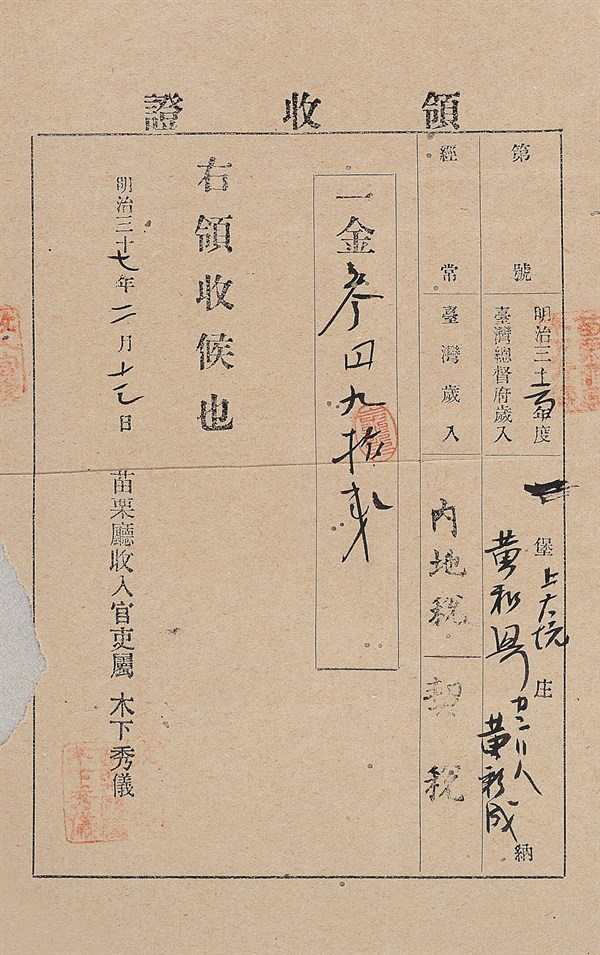 領收證
第　號
明治三十六年度
臺灣總督府歲入
一堡上大坑庄
黃和興
外二人
黃新成
納
經常
臺灣歲入
內地稅
契稅
一金參円九拾
右領收候也
明治三十七年二月十七日
苗栗廳收入官吏屬 木下秀儀